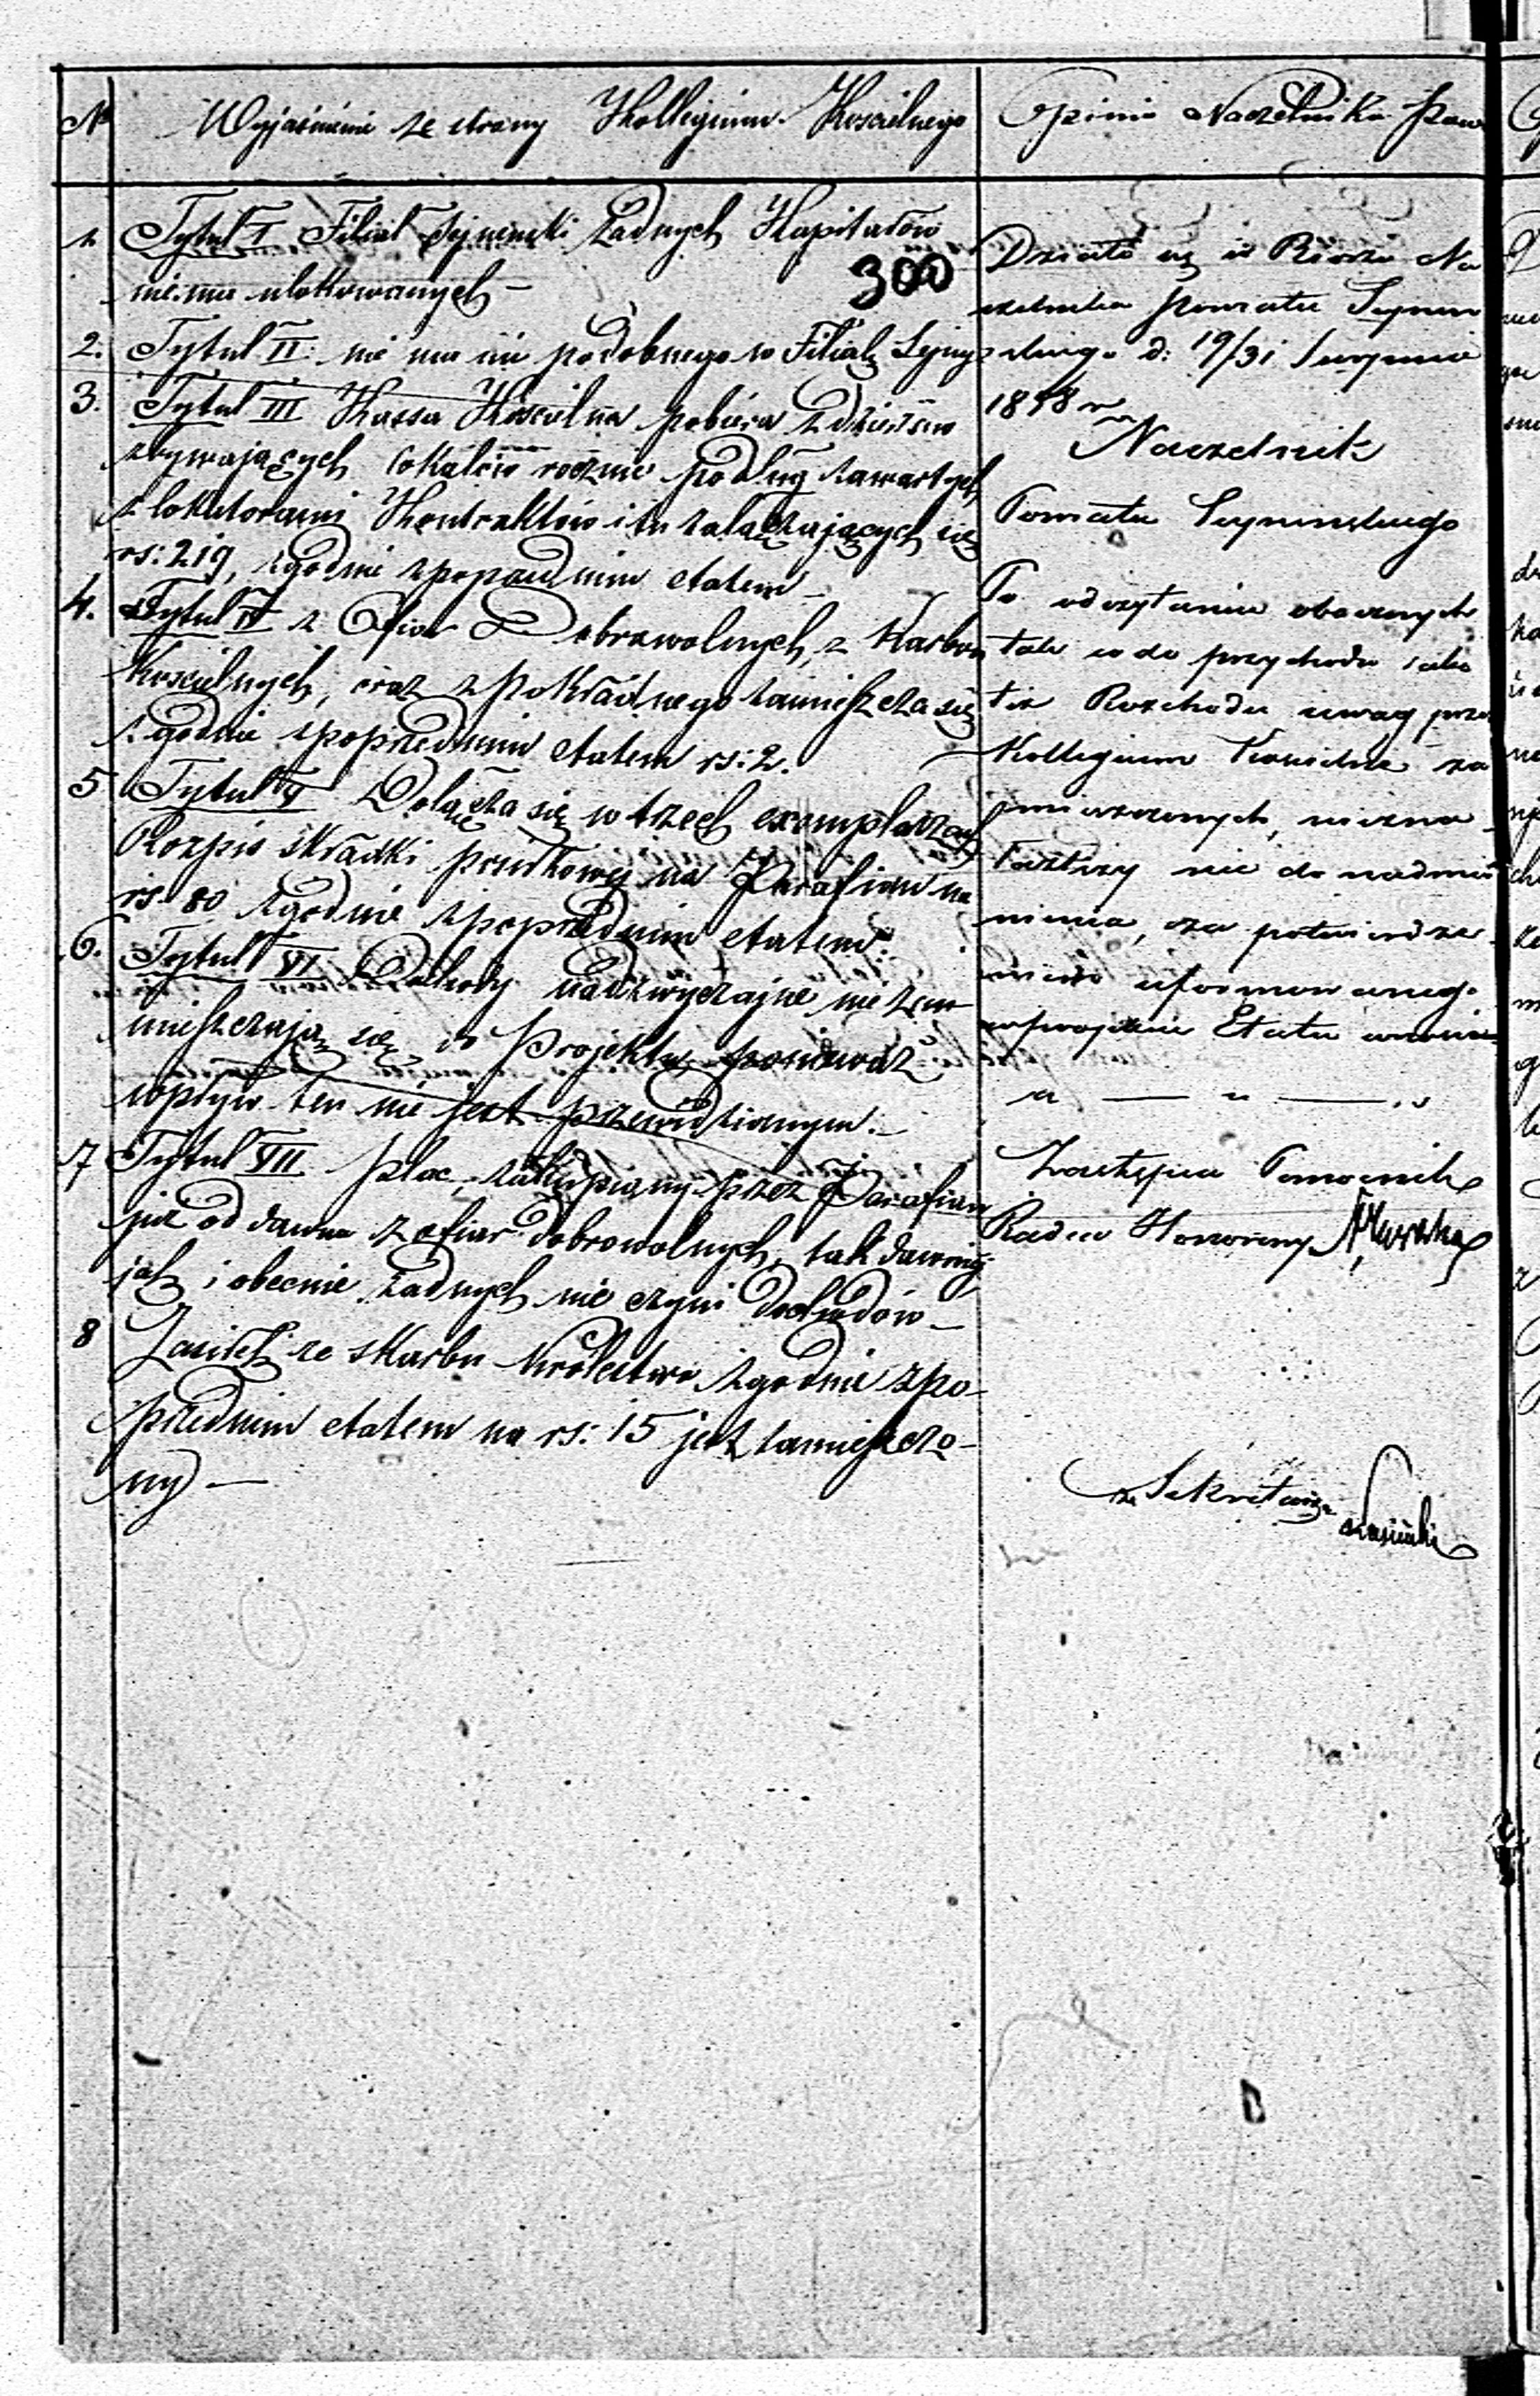 № Wyjaśnienie ze strony Kollegium Kościelnego
1. Tytuł I Filiał Sejneński żadnych Kapitałów
nie ma ulokowanych —
300
2. Tytuł II: nie ma nic podobnego w Filialę Sejny
3. Tytuł III Kassa Kościelna pobiera z dzierżaw
zbywających lokalów rocznie podług zawartych
z lokatorami Kontraktów i tu załączających się
rs: 219, zgodnie z poprzednim etatem —
4. Tytuł IV z Ofiar Dobrowolnych, z Karbon
Kościelnych, oraz z Pokładnego zamieszcza się
zgodnie z poprzednim etatem rs: 2.
5 Tytuł V Dołącza się w trzech exemplarzach
Rozpis składki na Parafian na
rs. 80 zgodnie z poprzednim etatem.
6. Tytuł VI Dochody nadzwyczajne nie zam
mieszczają się w Projektu ponieważ
wpływ ten nie jest przewidzianym. —
7 Tytuł VII plac, zakupiony przez Parafian
już od dawna z ofiar dobrowolnych, tak dawniej
jak i obecnie żadnych nie czyni dochodów —
8 Zasiłek ze skarbu Królestwa zgodnie z po-
przednim etatem na rs: 15 jest zamieszczo-
ny —
Opinia Naczelnika Pow
Działo się w Biórze Na
czelnika Powiatu Sejneń
skiego d: 19/31 Sierpnia
1858 r.
Naczelnik
Powiatu Sejneńskiego
Po odczytaniu obocznych
tak co do przychodu jako
też Rozchodu uwag przez
Kollegium Kościelne za
mieszczonych, niezna
nic do nadmie
nienia, za potwierdze
niem uformowanego
Etatu wnosi
" — " — "
Zastępca Pomocnik
Radca Honorowy
za Sekretarza